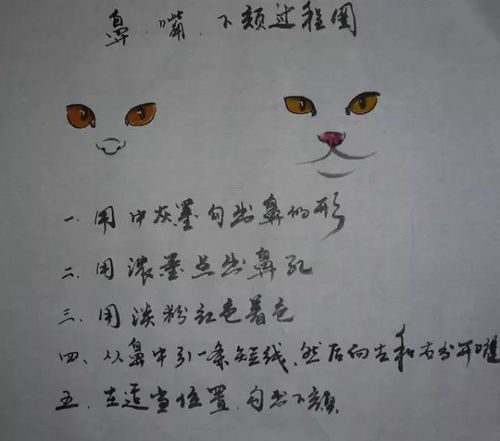 鼻、嘴、下颏过程图
一、用中灰墨勾出鼻的形
二、用浓墨点出鼻孔
三、用淡粉红色着色
四、从鼻中引一条短线,然后向左和右分开嘴
五、在适当位置,勾出下颏